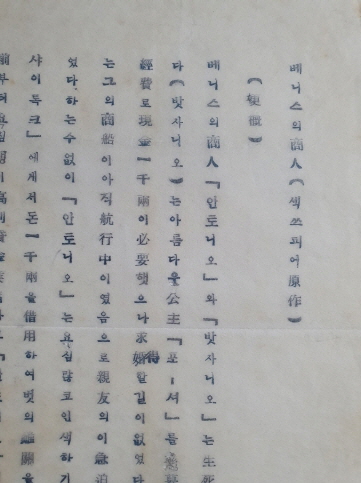 베니스의商人(섹쓰피어原作)
(梗槪)
베니스의商人『안토니오』와『밧사니오』는生死
다(밧사니오)는아름다울公主『포ー셔』를
經費로現金一千兩이必要햇으나求婚得할길이없였다
는그의商船이아직航行中이였음으로親友의이急迫
였다하는수없이『안토니오』는욕심많고인색하기
샤이독크』에게저돈一千兩을借用하여벗의難關을
前부터